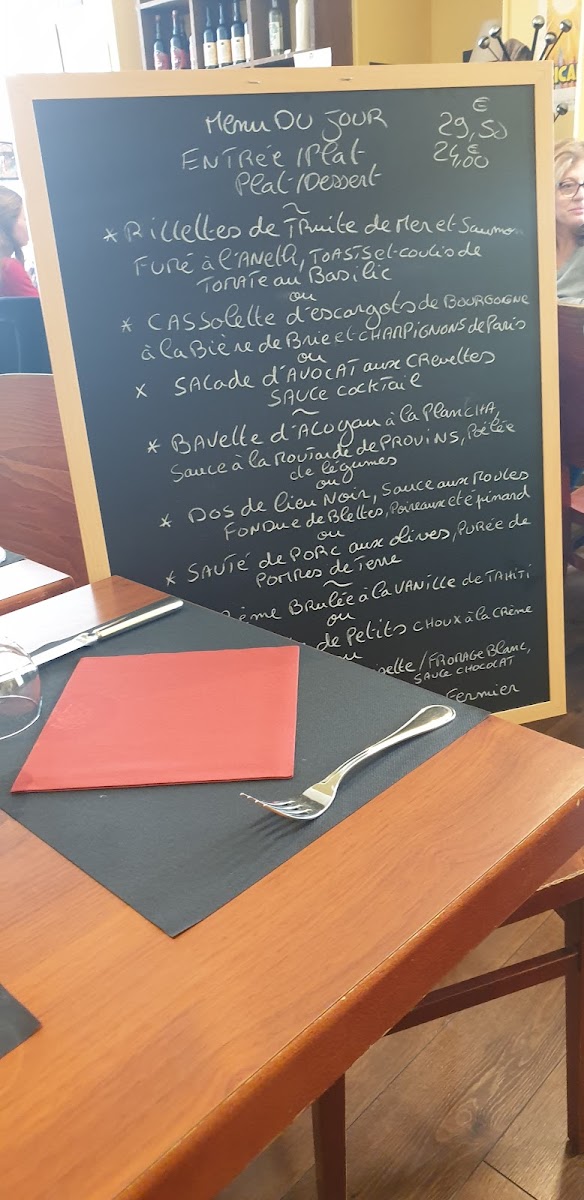 Menu DU JOUR
€
29,50
ENTRÉE / Plat
€
24,00
Plat / Dessert
~
* Rillettes de TRuite de Mer et Saumon
Fumé à l'Aneth, TOASTS et coulis de
TOMATE au Basilic
ou
* CASSolette d'escargots de BOURGOGNE
à la Bière de Brie et CHAMPIGNONS de Paris
ou
x SALade d'AVOCAT aux CRevettes
SAUCE COCKTAil
~
* BAVette d'ALoyau à la PlanCHA,
Sauce à la Moutarde de PROVINS, Poêlée
de légumes
ou
* DOS de lieu NOIR, SAUCE aux Moules
FONDUE de Blettes, Poireaux et épinard
ou
* SAUTÉ de PORC aux olives, PURÉE de
POMMES de Terre
~
ème BRulée à la VANille de TAHITI
ou
de Petits CHOUX à la CRÈme
ou
sette / FROMAGE BlANC,
SAUCE CHOCOLAT
Fermier